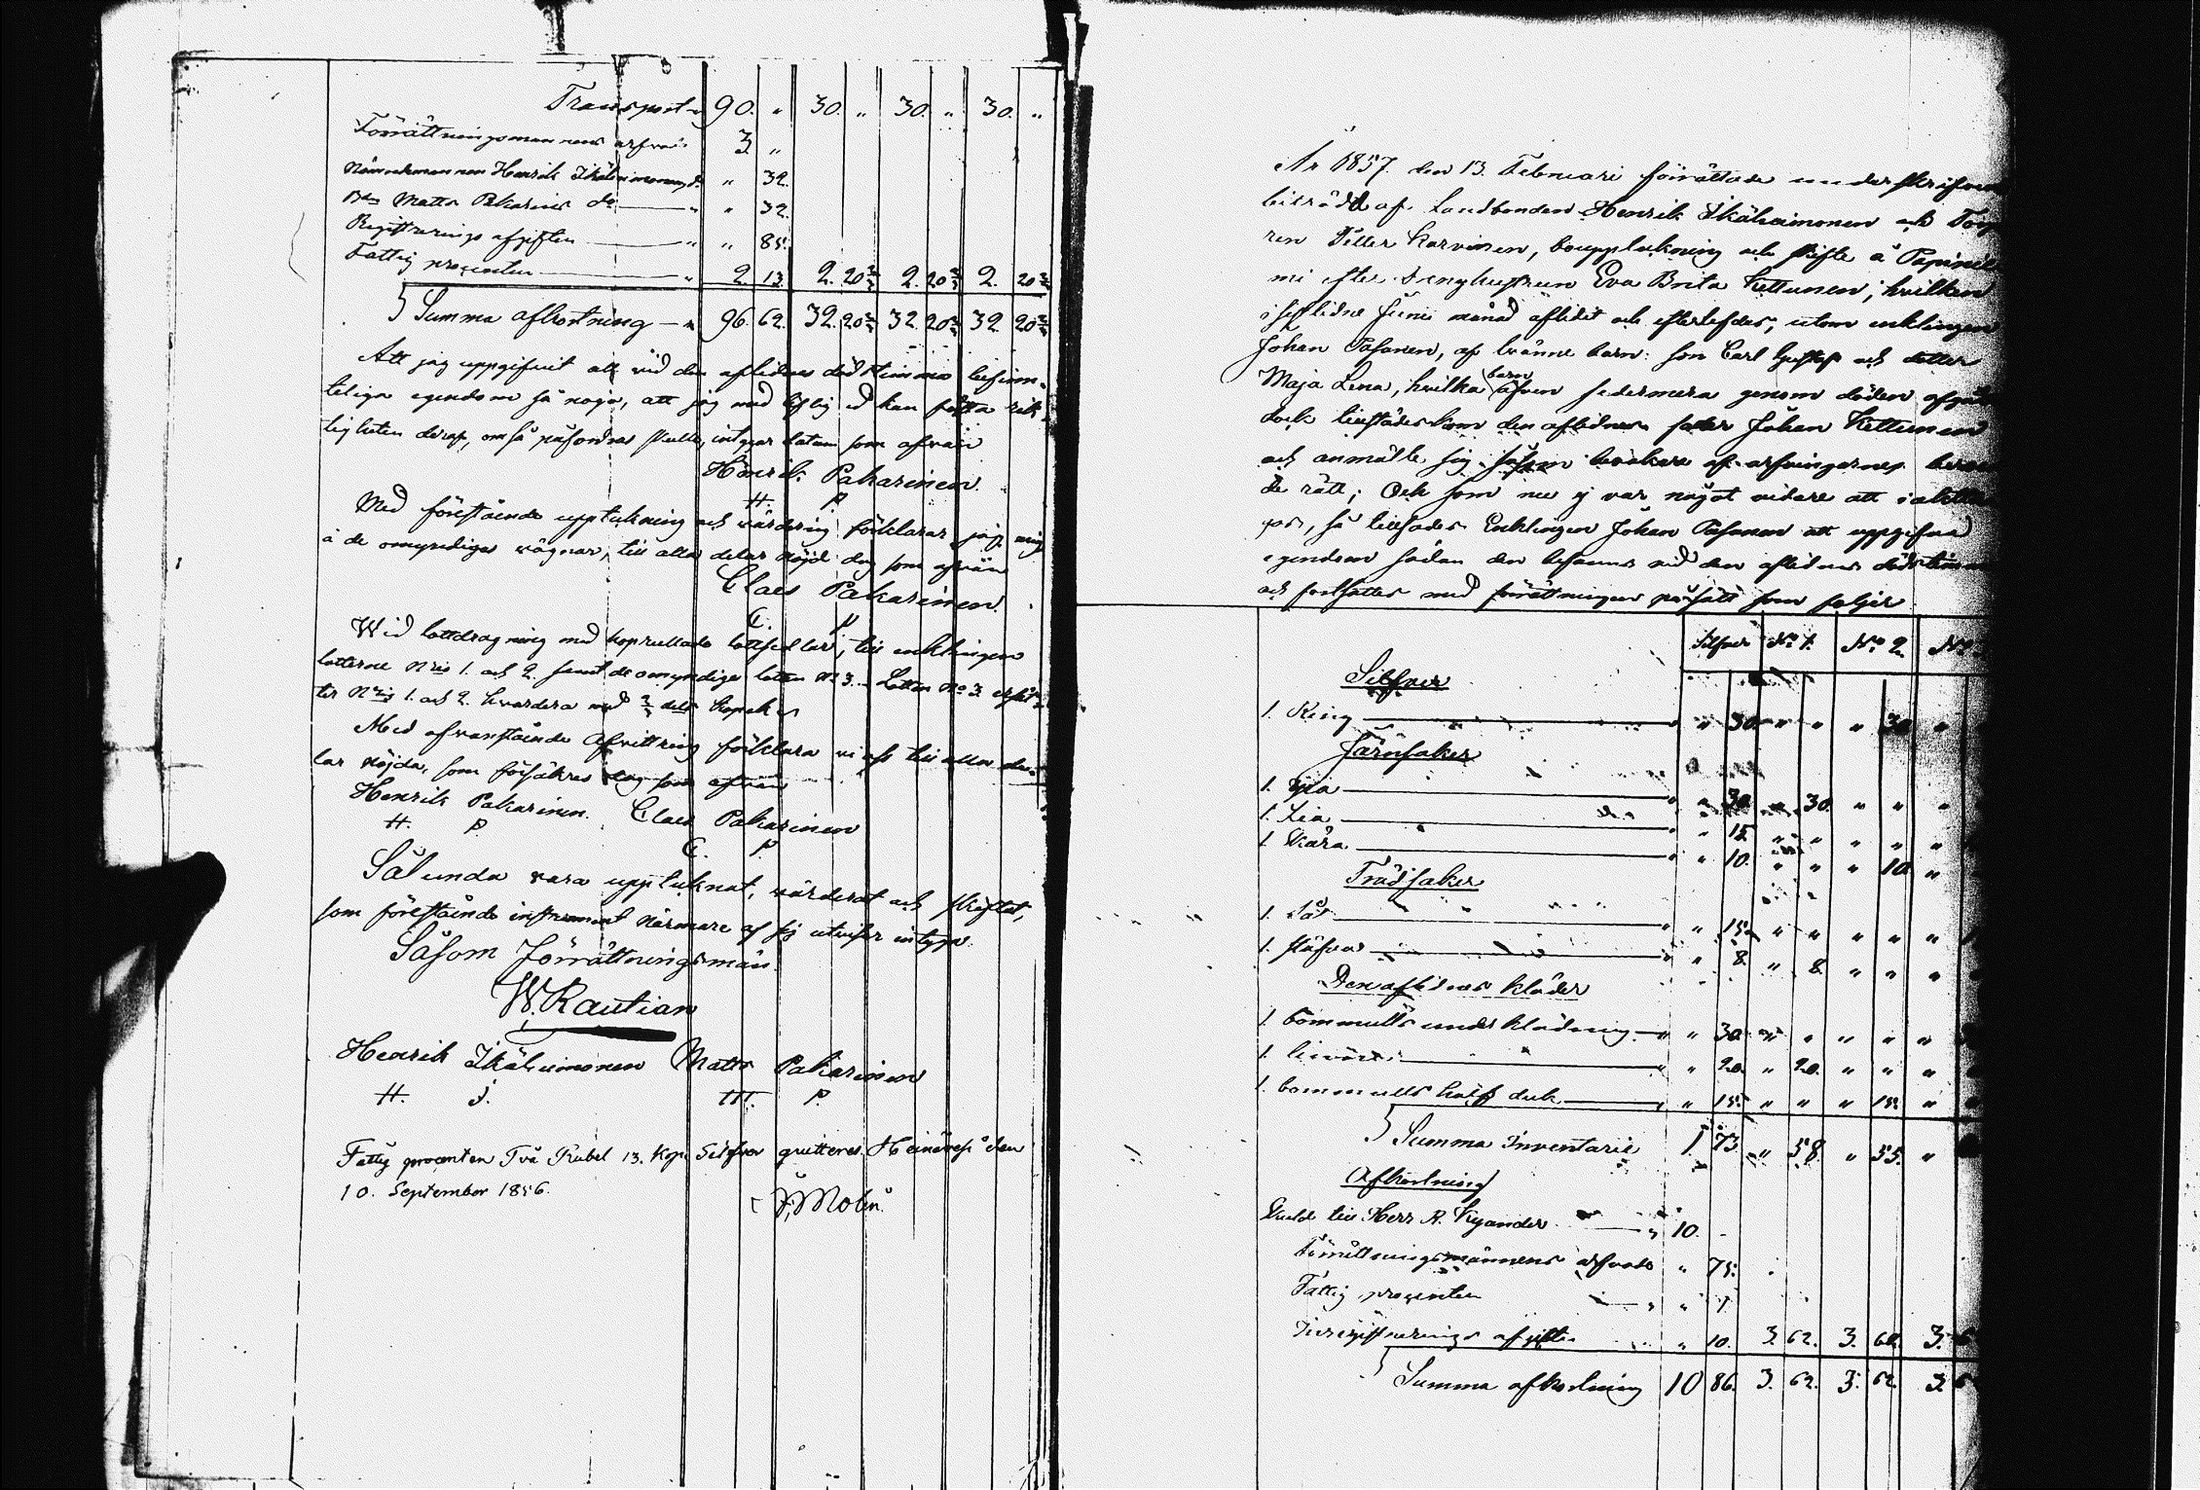 Transport " 90. " 30. " 30. " 30. "
Förrättningsmannens arfvode 3. "
Nämndemannen Henrik Ikäheimonens do " 32.
Bdn Matts Pakarines do " " 32.
Registrerings afgiften " " 85.
Fattig procenten " 2. 13. 2. 20 2/3 2. 20 2/3 2. 20 2/3
Summa afkortning " 96. 62. 32. 20 2/3 32. 20 2/3 32. 20 2/3
Att jag uppgifvit all vid den aflidnes dödstimma befinn-
teliga egendom så noga, att jag med liflig ed kan fästa rik-
tigheten deraf, om så påfordras skulle, intygar datum som ofvan
Henrik Pakarinen
H. P.
Med förestående uppteckning och värdering förklarar jag mig
å de omyndiges vägnar, till alla delar nöjd dag som ofvan
Claes Pakarinen.
C. P.
Wid lottdragning med hoprullade lottsedlar, till enklingen
lotterne Nris 1. och 2. samt de omyndige lotten No 3. Lotten No 3 ersät-
ter Nris 1. och 2. hvardera med 2/3 dels kopek
Med ofvanstående afvittring förklara vi oss till alla de-
lar nöjda, som försäkras dag som ofvan
Henrik Pakarinen. Claes Pakarinen
H. P. C. P.
Sålunda vara upptecknat, värderat och skiftat,
som förestående instrument närmare af sig utvisar intyga.
Såsom Förrättningsmän
W. Rautian
Henrik Ikäheimonen Matts Pakarinen
H. I. M. P.
Fattig procenten Två Rubel 13. kop. Silfver qvitteras Heinävesi den
10. September 1856.
J. Molin.
År 1857. den 13. Februari förrättade underskrifven
biträdd af Landbonden Henrik Ikäheimonen och Torp
ren Petter Karvinen, bouppteckning och skifte å Papinie
mi efter drenghustrun Eva Brita Kettunen, hvilken
i sistlidne Junii månad aflidit och efterlefdes, utom enklingen
Johan Pasanen, af tvänne barn: son Carl Gustaf och dotter
Maja Lena, hvilka barn äfven sedermera genom döden afgått
dock tillstädeskom den aflidnes fader Johan Kettunen
och anmälte sig såsom bevakare af arfvingarnes beroen
de rätt; Och som nu ej var något vidare att iaktta
gas, så tillsades Enklingen Johan Pasanen att uppgifva
egendom sådan den befanns vid den aflidnes dödstimma
och fortsattes med förrättningen påsätt som följer
Silfver No 1. No 2. No
Silfver
1. Ring " 30. " " " 30. "
Järnsaker
1. Yxa " " 30. " 30. " " "
1. Lia " " 15. " " " " "
1. Skära " " 10. " " " 10. "
Trädsaker
1. Så " " 15. " " " " "
1. " " 8. " 8. " " "
Den aflidnes kläder
1. bommulls underklädning " " 30. " " " " "
1. " " 20. " 20. " " "
1. bommulls half duk " " 15. " " " 15. "
Summa Inventarie 1. 73. " 58. " 55. "
Afkortning
Skuld till Herr A. Kyander " 10. "
Förrättningsmännens arfvode " " 75.
Fattig procenten " " 1.
Inregistrerings afgiften " 10. 3. 62. 3. 62. 3. 6
Summa afkortning 10 86. 3. 62. 3. 62. 3. 6